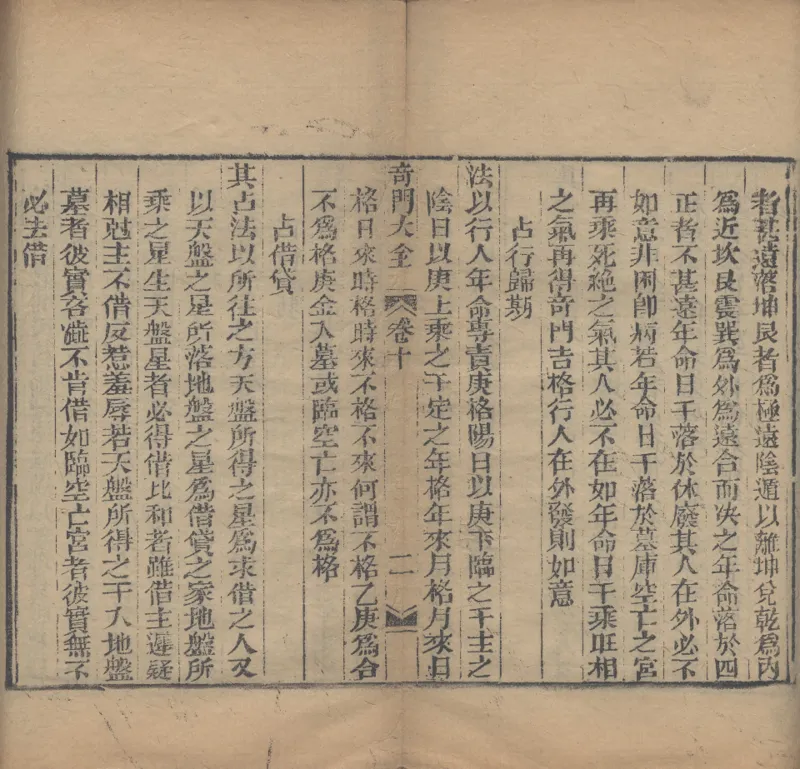 者甚遠落坤艮者為極遠陰遁以離坤兌乾為內
為近坎艮震巽為外為遠合而决之年命落於四
正者不甚遠年命日干落於休廢其人在外必不
如意非困即病若年命日干落於墓庫空亡之宮
再乘死絶之氣其人必不在如年命日干乘旺相
之氣再得竒門吉格行人在外發則如意
占行歸期
法以行人年命專責庚格陽日以庚下臨之干主之
陰日以庚上乘之干定之年格年來月格月來日
竒門大全 卷十 二
格日來時格時來不格不來何謂不格乙庚為合
不為格庚金入墓或臨空亡亦不為格
占借貸
其占法以所往之方天盤所得之星為求借之人又
以天盤之星所落地盤之星為借貸之家地盤所
乘之星生天盤星者必得借比和者雖借主遲疑
相尅主不借反惹羞辱若天盤所得之干入地盤
墓者彼實吝嗇不肯借如臨空亡宮者彼實無不
必去借